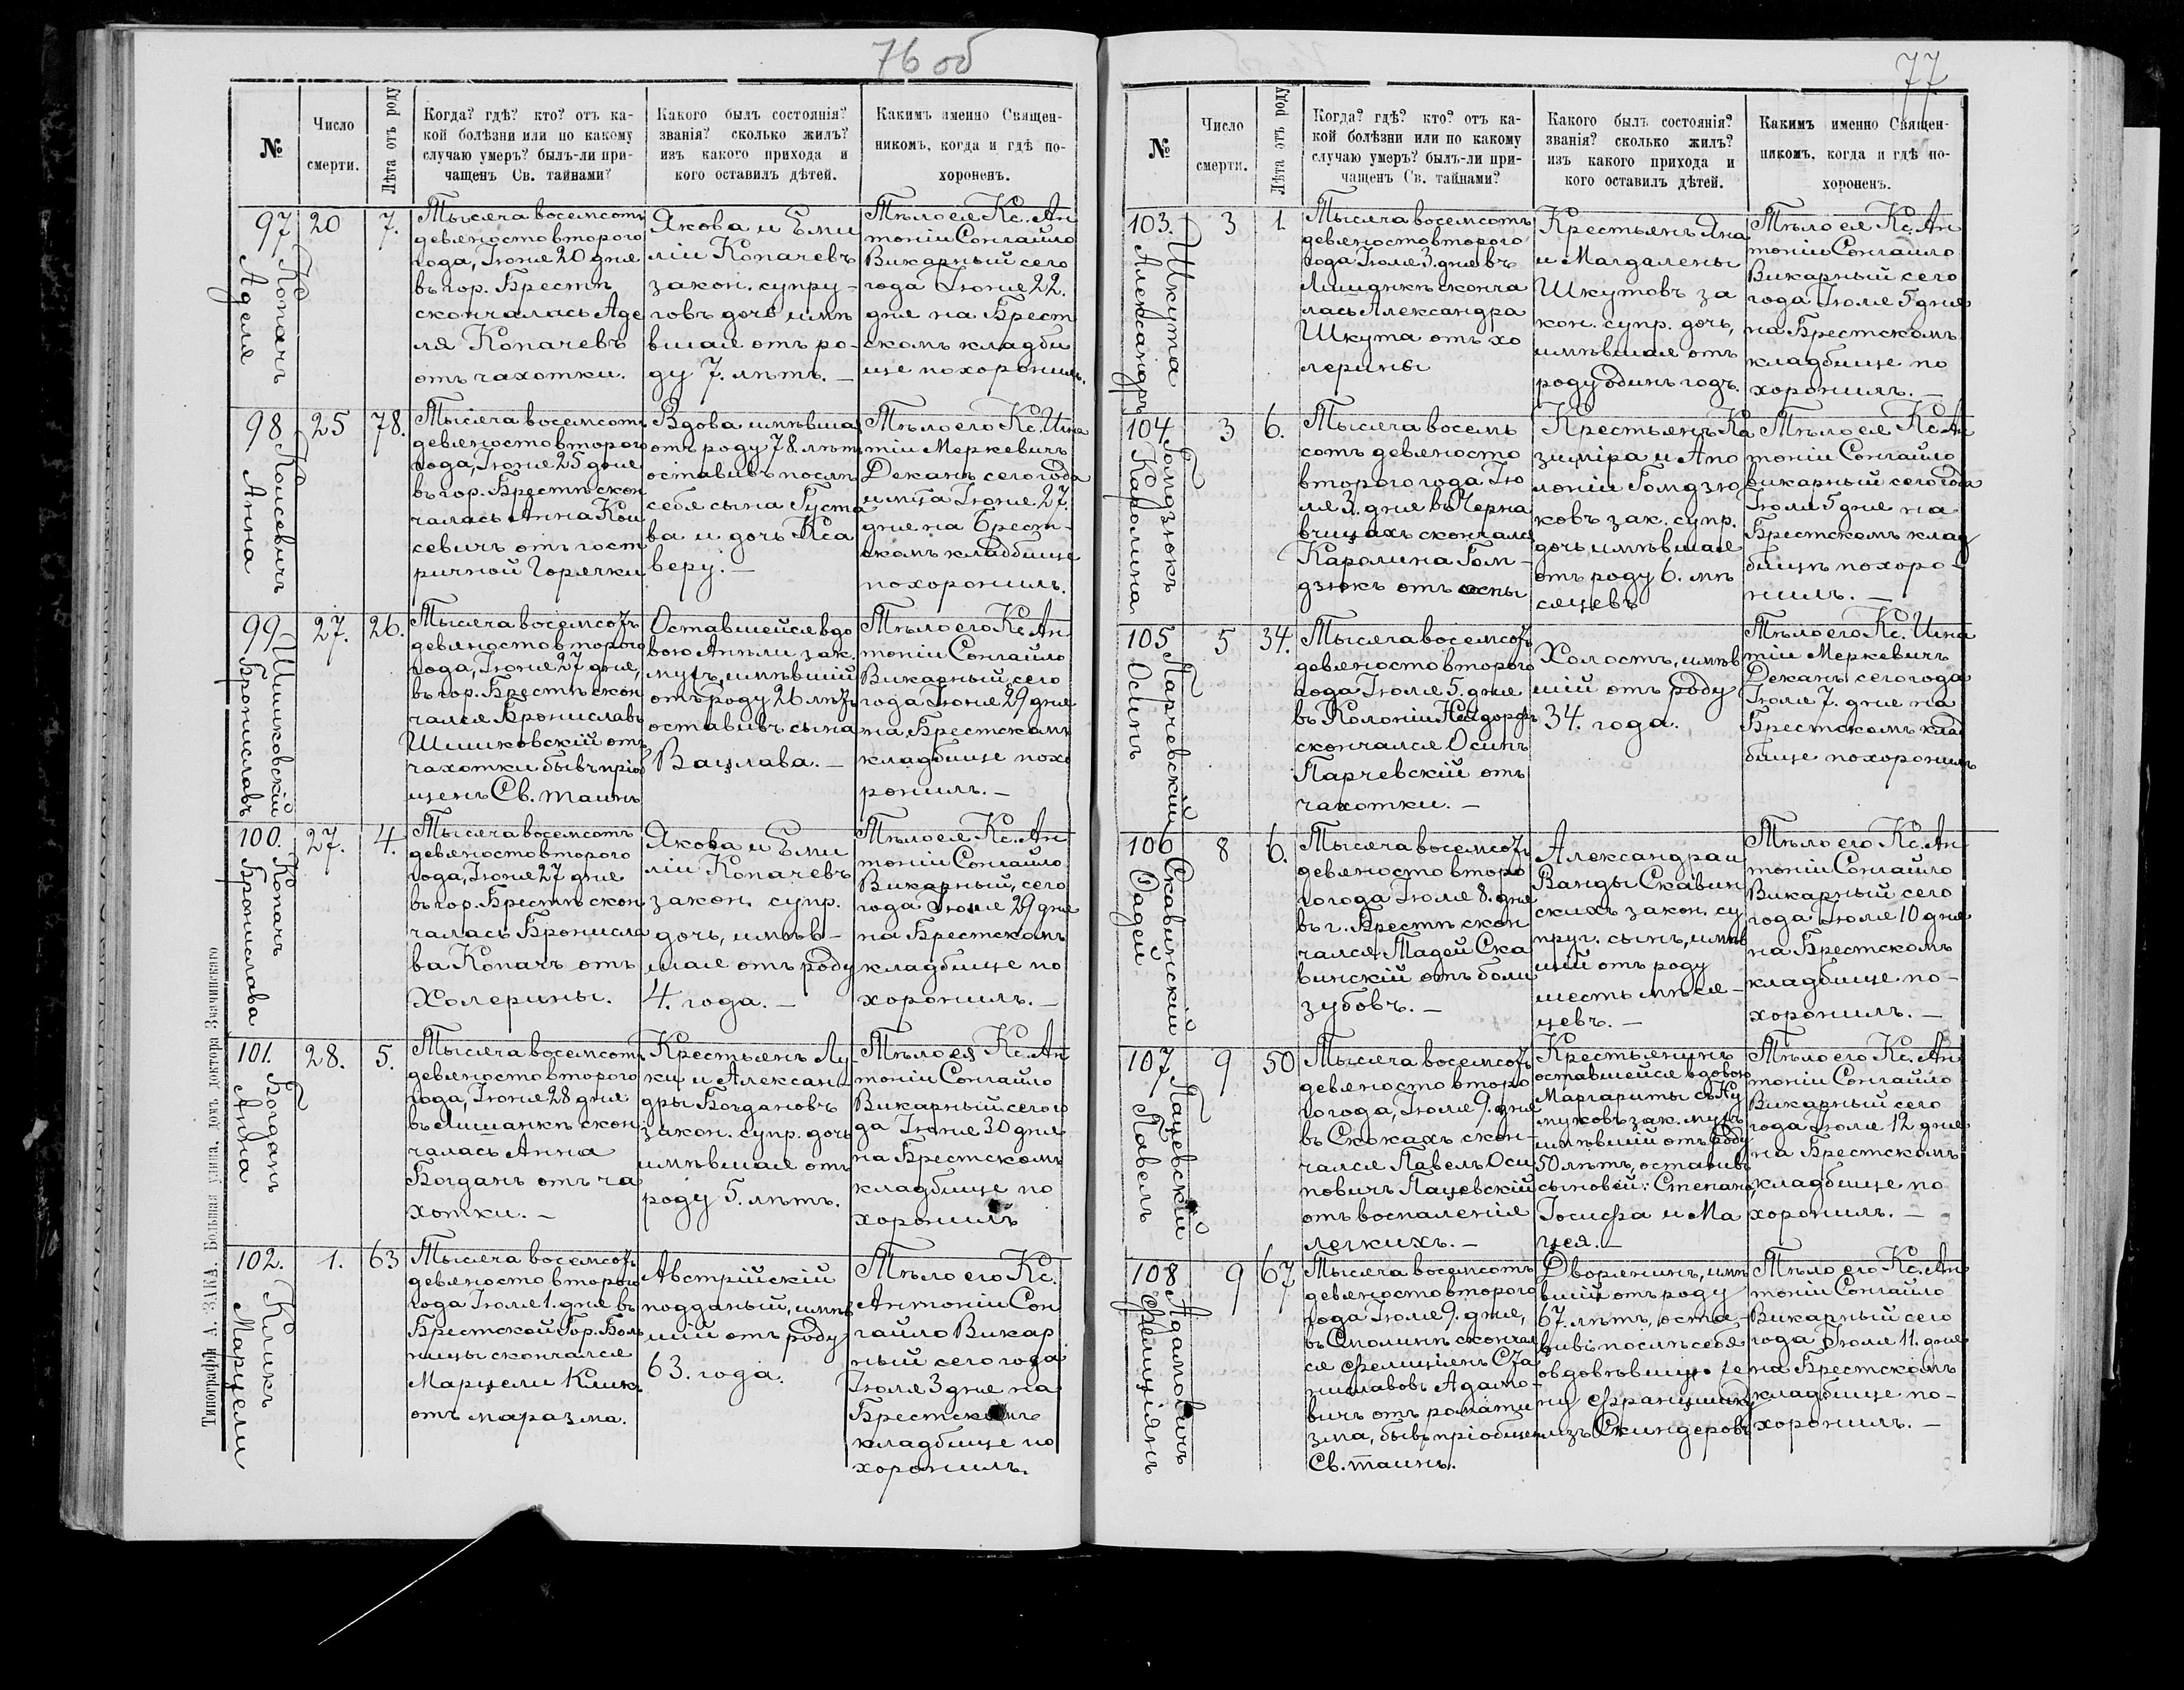 76 об
№
Число
смерти.
Лѣта отъ роду
Когда? гдѣ? кто? отъ ка-
кой болѣзни или по какому
случаю умеръ? былъ-ли при-
чащенъ Св. тайнами?
Какого былъ состоянія?
званія? сколько жилъ?
изъ какого прихода и
кого оставилъ дѣтей.
Какимъ именно Священ-
никомъ, когда и гдѣ по-
хороненъ.
97
Копачъ
Аделя
20
7.
Тысяча восемсотъ
девяносто второго
года, Іюня 20 дня
въ гор. Брестѣ
скончалась Аде
ля Копачевъ
отъ чахотки.
Якова и Еми
ліи Копачевъ
закон. супру-
говъ дочь имѣ
вшая отъ ро-
ду 7. лѣтъ. —
Тѣло ея Кс. Ан
тоній Сонгайло
Викарный сего
года Іюня 22.
дня на Брест
скомъ кладби
ще похоронилъ.
98
Консевичъ
Анна
25
78.
Тысяча восемсотъ
девяносто второго
года, Іюня 25 дня
въ гор. Брестѣ скон
чалась Анна Кон
севичъ отъ гост
ричной Горячки
Вдова имѣвшая
отъ роду 78 лѣтъ
оставивъ послѣ
себя сына Густа
ва и дочь Кса
веру. —
Тѣло его Кс. Игна
тій Меркевичъ
Деканъ сего года
и м-ца Іюня 27.
дня на Брест-
скомъ кладбище
похоронилъ.
99
Шишковскій
Брониславъ
27.
26.
Тысяча восемсотъ
девяносто второго
года, Іюня 27 дня,
въ гор. Брестѣ скон
чался Брониславъ
Шишковскій отъ
чахотки бывъ пріоб
щенъ Св. таинъ
Оставшейся вдо
вою Анѣли зак.
мужъ, имѣвшій
отъ роду 26 лѣтъ
оставивъ сына
Вацлава. —
Тѣло его Кс. Ан
тоній Сонгайло
Викарный, сего
года Іюня 29 дня
на Брестскомъ
кладбище похо
ронилъ. —
100.
Копачъ
Бронислава
27.
4.
Тысяча восемсотъ
девяносто второго
года, Іюня 27 дня
въ гор. Брестѣ скон
чалась Бронисла
ва Копачъ отъ
Холерины.
Якова и Еми
ліи Копачевъ
закон. супр.
дочь, имѣв-
шая отъ роду
4. года. —
Тѣло ея Кс. Ан
тоній Сонгайло
Викарный, сего
года Іюня 29 дня
на Брестскомъ
кладбище по
хоронилъ. —
101.
Богданъ
Анна
28.
5.
Тысяча восемсотъ
девяносто второго
года, Іюня 28 дня
въ Лишанкѣ скон
чалась Анна
Богданъ отъ ча
хотки. —
Крестьянъ Лу-
ки и Алексан-
дры Богдановъ
закон. супр. дочь
имѣвшая отъ
роду 5. лѣтъ.
Тѣло ея Кс. Ан
тоній Сонгайло
Викарный сего го
да Іюня 30 дня
на Брестскомъ
кладбище по
хоронилъ
102.
Кликъ
Марцели
1.
63
Тысяча восемсотъ
девяносто второго
года Іюля 1. дня въ
Брестской Гор. Боль
ницы скончался
Марцели Кликъ
отъ маразма.
Австрійскій
подданый, имѣв
шій отъ роду
63. года.
Тѣло его Кс.
Антоній Сон
гайло Викар
ный сего года
Іюля 3 дня на
Брестскомъ
кладбище по
хоронилъ.
Типографія А. ЗАКА. Большая улица, домъ доктора Значинскаго
77
№
Число
смерти.
Лѣта отъ роду
Когда? гдѣ? кто? отъ ка-
кой болѣзни или по какому
случаю умеръ? былъ-ли при-
чащенъ Св. тайнами?
Какого былъ состоянія?
званія? сколько жилъ?
изъ какого прихода и
кого оставилъ дѣтей.
Какимъ именно Священ-
никомъ, когда и гдѣ по-
хороненъ.
103.
Шкута
Александръ
3
1.
Тысяча восемсотъ
девяносто второго
года Іюля 3. дня въ
Лишанкѣ сконча
лась Александра
Шкута отъ хо
лерины
Крестьянъ Яна
и Магдалены
Шкутовъ за
кон. супр. дочь,
имѣвшая отъ
роду одинъ годъ.
Тѣло ея Кс. Ан
тоній Сонгайло
Викарный сего
года Іюля 5 дня
на Брестскомъ
кладбище по
хоронилъ. —
104
Гомдзюкъ
Каролина
3
6.
Тысяча восемь
сотъ девяносто
второго года Ію
ля 3. дня въ Черна
вчицахъ скончалась
Каролина Гом-
дзюкъ отъ оспы
Крестьянъ Ка
зиміра и Апо
лоніи Гомдзю
ковъ зак. супр.
дочь имѣвшая
отъ роду 6. мѣ
сяцевъ
Тѣло ея Кс. Ан
тоній Сонгайло
викарный сего года
Іюля 5 дня на
Брестскомъ клад
бищѣ похоро-
нилъ. —
105
Парчевскій
Осипъ
5
34.
Тысяча восемсотъ
девяносто второго
года Іюля 5. дня
въ Колоніи Нейдорфъ
скончался Осипъ
Парчевскій отъ
чахотки. —
Холостъ, имѣв
шій отъ роду
34. года.
Тѣло его Кс. Игна
тій Меркевичъ
Деканъ сего года
Іюля 7. дня на
Брестскомъ клад
бище похоронилъ
106
Скавинскій
Фадей
8
6.
Тысяча восемсотъ
девяносто второ
го года Іюля 8. дня
въ г. Брестѣ скон
чался Тадей Ска
винскій отъ боли
зубовъ. —
Александра и
Ванды Скавин
скихъ закон. су
пруг. сынъ, имѣв
шій отъ роду
шесть мѣся-
цевъ. —
Тѣло его Кс. Ан
тоній Сонгайло
Викарный сего
года Іюля 10 дня
на Брестскомъ
кладбище по-
хоронилъ. —
107
Пацевскій
Павелъ
9
50
Тысяча восемсотъ
девяносто второ
го года, Іюля 9. дня
въ Скокахъ скон-
чался Павелъ Оси
повичъ Пацевскій
отъ воспаленія
легкихъ. —
Крестьянинъ
оставшейся вдовою
Маргариты съ
зак. мужъ
имѣвшій отъ роду
50 лѣтъ, оставивъ
сыновей: Степана,
Іосифа и Ма
цея. —
Тѣло его Кс. Ан
тоній Сонгайло
Викарный сего
года Іюля 12 дня
на Брестскомъ
кладбище по
хоронилъ. —
108
Адамовичъ
Фелиціянъ
9
67
Тысяча восемсотъ
девяносто второго
года Іюля 9. дня,
въ Смолинѣ скончал
ся Фелиціянъ Ста
ниславовъ Адамо-
вичъ отъ ромати
зма, бывъ пріобщенъ
Св. таинъ.
Дворянинъ, имѣ
вшій отъ роду
67. лѣтъ, оста-
вивъ послѣ себя
овдовѣвшую же
ну Франциш
изъ Скиндеровъ
Тѣло его Кс. Ан
тоній Сонгайло
Викарный сего
года Іюля 11. дня
на Брестскомъ
кладбище по-
хоронилъ. —